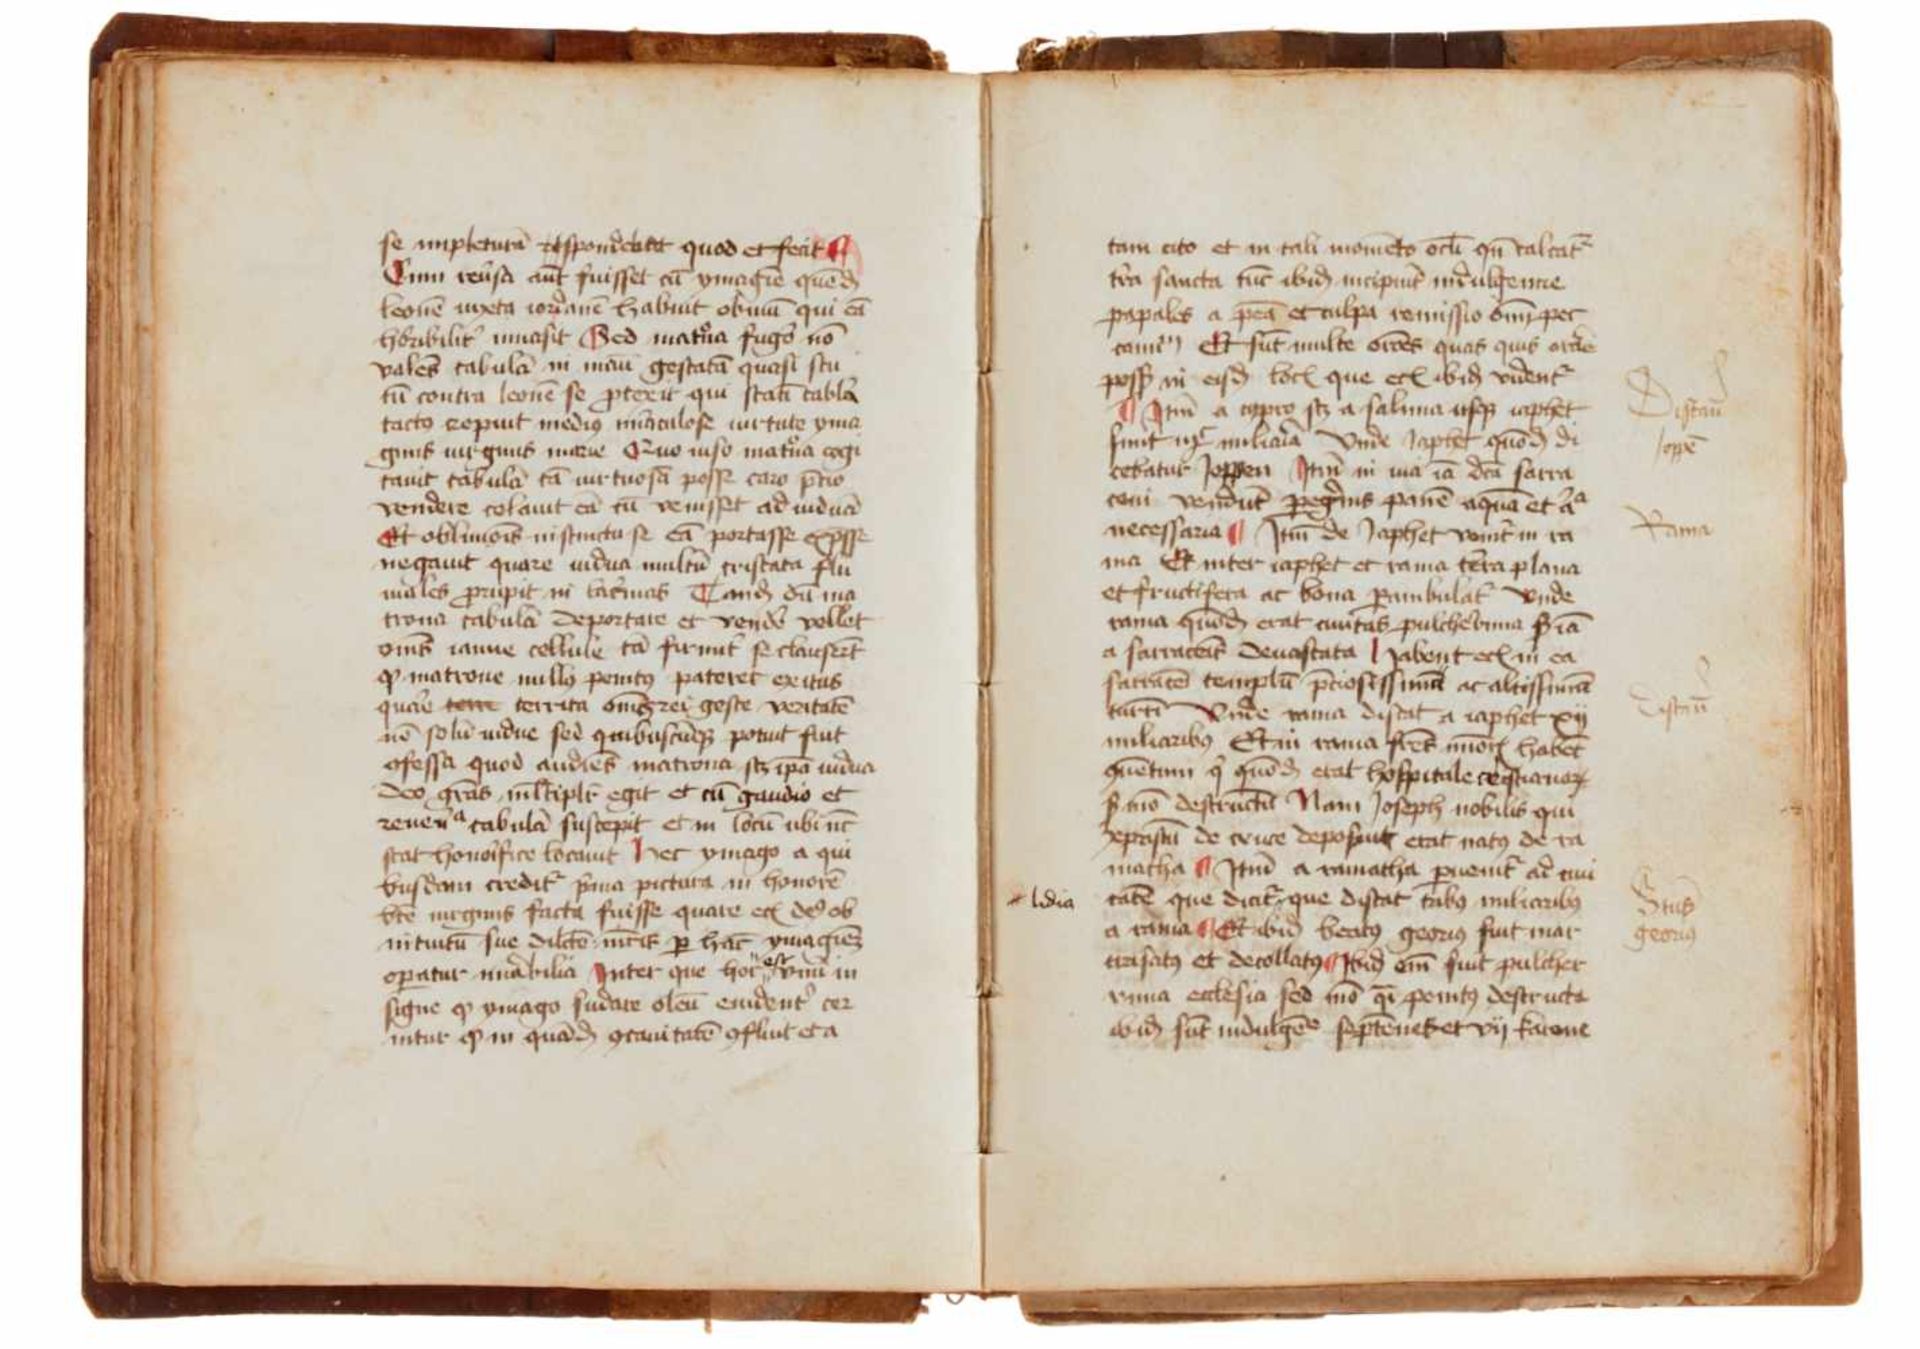 se impleturā respondebat quod et fecit
Cum reūsa aūt fuisset cū ymagīe quendā
leonē iuxta iordanē habuit obuiū qui eā
horribilit̄ inuasit Sed mat̄ona fugē nō
valēs tabulā in manū gestatā quasi scu
tū contra leonē se ꝓtexit qui statī tabla
tacta crepuit medius miraculose uirtute yma
ginis uirginis marie Quo uiso matrōa cogi
tauit tabulā tā uirtuosā posse caro p̄cio
vendere celauit eā cū venisset ad viduā
Et obliuiōis instinctu se eā portasse exp̄sse
negauit quare uidua multū tristata flu
uiales ꝓrupit in lac̄mas Tandē dū ma
trona tabulā deportare et vendē vellet
om̄s ianue cellule tā firmit̄ se clauserūt
ꝙ matrone nullus penitꝰ pateret exitus
quare territa om̄s rei geste veritatē
nō solū uidue sed quibuscūqꝫ potuit fuit
ꝯfessa quod audiēs matrona scꝫ ip̄a uidua
deo grās mltiplr̄ egit et cū gaudio et
reuerᵃ tabulā suscepit et in locū ubi nūc
stat honorifice locauit Hec ymago a qui
busdam creditᷣ prima pictura in honorē
btē uirginis facta fuisse quare ecī deꝰ ob
intuitū sue dilctē mrīs ꝑ hāc ymaginē
operatur mirabilia Inter que hoc est vnū in
signe ꝙ ymago sudare oleū euident̄ cer
nitur ꝙ in quādā ꝯcauitatē ꝯfluit et a
tam cito et in tali momēto oclī qn̄ calcatᷣ
tr̄a sancta tūc ibidē incipiūt indulgencie
papales a pēa et culpa remissio om̄i pec
camiᵐ Et sūt multe
poss̄ in eisdē locꝭ que ecī ibidē videntᷣ
Itm̄ a cypro scꝫ a salina usqꝫ iaphet
sunt miliaria Vnde Japhet quondā di
cebatur Joppen Itm̄ in uia iā dcā sarra
ceni vendūt pegrīis panē aquā et aᵃ
necessaria Itm̄ de Japhet venit̄ in ra
ma Et inter iaphet et rama terra plana
et fructifera ac bona ꝑambulatᷣ Vnde
rama quondā erat ciuitas pulcherrima sꝫ iā
a sarracēis deuastata Habent ecī in ea
sarracēi templū p̄ciosissimū ac altissimā
turrī Vnde rama distat a iaphet xij
miliaribꝰ Et in rama fr̄es mīorꝭ habēt
ꝯuentum qͥ quondā erat hospitale cristianoꝝ
sꝫ mō destructū Nam Joseph nobilis qui
xpastū de cruce deposuit erat natꝰ de ra
matha Itm̄ a ramatha ꝑuenitᷣ ad ciui
tatē que dicitᷣ que distat tribꝰ miliaribꝰ
a rama Et ibidē beatꝰ georiꝰ fuit mar
tirisatꝰ et decollatꝰ Ibidē em̄ fuit pulcher
rima ecclesia sed mō qͣsi penitꝰ destructa
ibidē sūt indulgēe septēnis et vij karene
Distan
Joppē
Rama
distan
lidia
Sctūs
georiꝰ